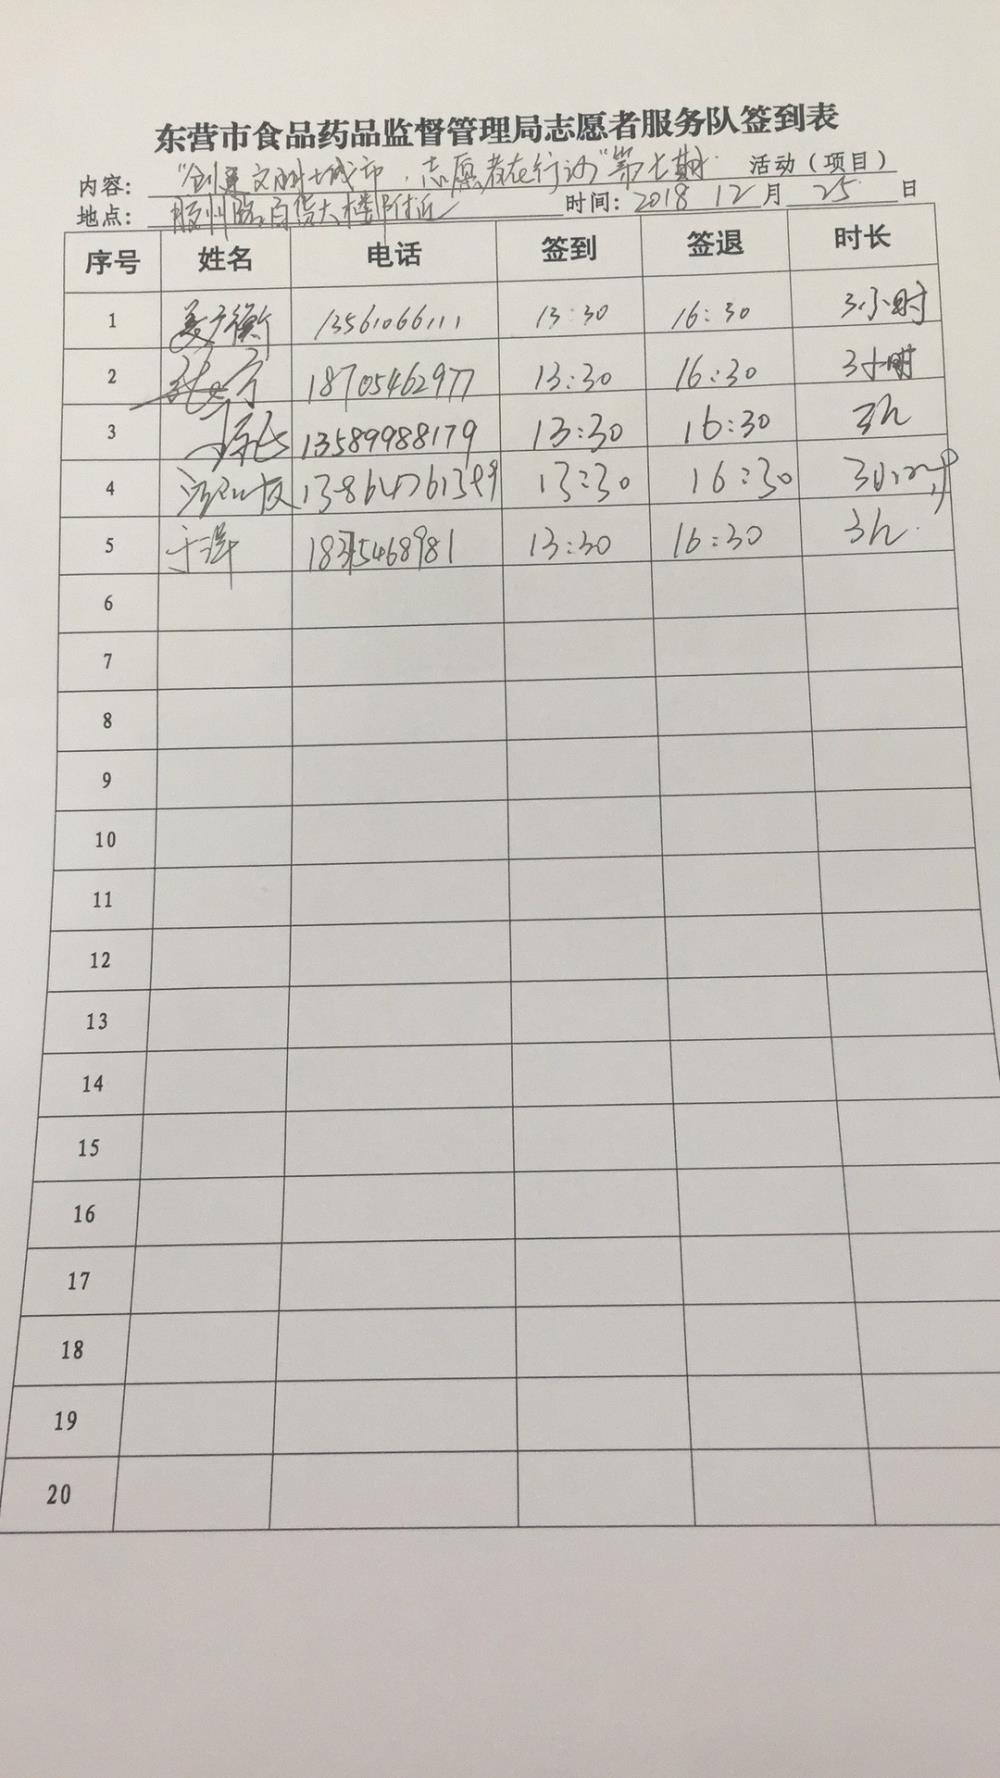 东营市食品药品监督管理局志愿者服务队签到表
内容: "创建文明城市，志愿者在行动"第七期 活动（项目）
地点: 胶州路百货大楼附近 时间: 2018 12月 25 日
序号 姓名 电话 签到 签退 时长
1 姜广衡 13561066111 13:30 16:30 3小时
2 18705462977 13:30 16:30 3小时
3 13589988179 13:30 16:30 3h
4 13864761399 13:30 16:30 3小时
5 于洋 18315468981 13:30 16:30 3h
6
7
8
9
10
11
12
13
14
15
16
17
18
19
20